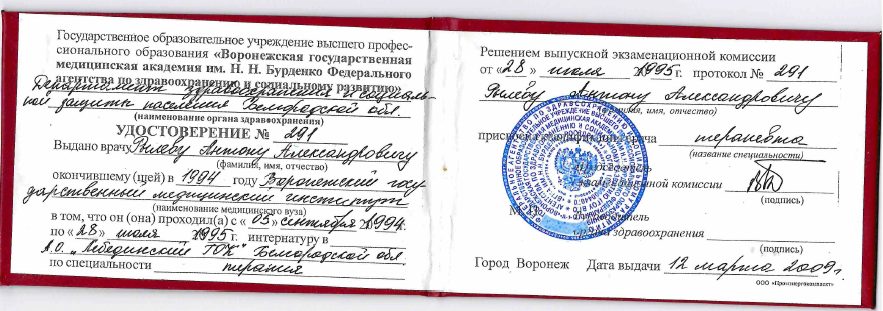 Государственное образовательное учреждение высшего профес-
сионального образования «Воронежская государственная
медицинская академия им. Н. Н. Бурденко Федерального
агентства по здравоохранению и социальному развитию»
Департамент здравоохранения и социаль-
ной защиты населения Белгородской обл.
(наименование органа здравоохранения)
УДОСТОВЕРЕНИЕ № 291
Выдано врачу Рылеву Антону Александровичу
(фамилия, имя, отчество)
окончившему (щей) в 1994 году Воронежский госу-
дарственный медицинский институт
(наименование медицинского вуза)
в том, что он (она) проходил(а) с «03» сентября 1994г.
по «28» июля 1995г. интернатуру в
А.О. „Лебединский ГОК" Белгородской обл.
по специальности терапия
Решением выпускной экзаменационной комиссии
от «28» июля 1995г. протокол № 291
Рылеву Антону Александровичу
(фамилия, имя, отчество)
врача терапевта
(название специальности)
комиссии
(подпись)
М.П.
органа здравоохранения
(подпись)
Город Воронеж Дата выдачи 12 марта 2009г.